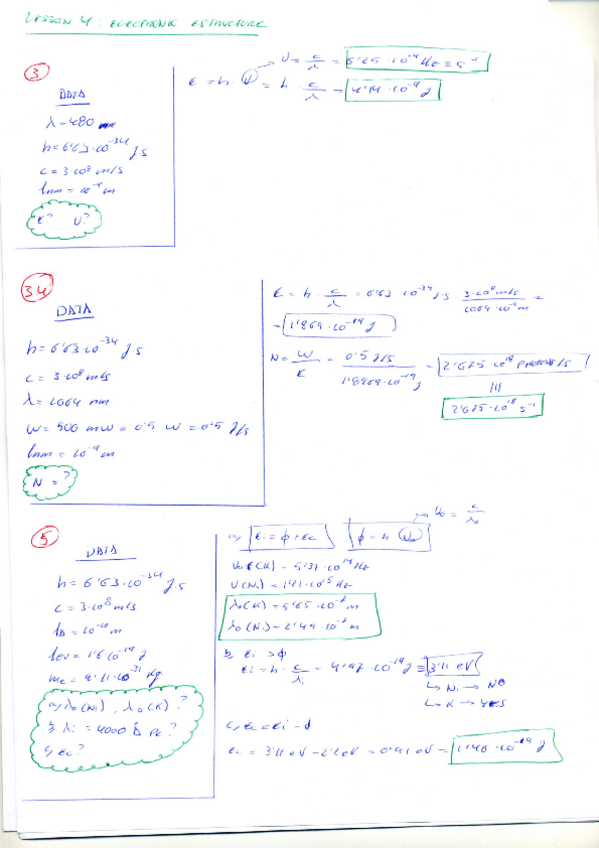 LESSON 4: ELECTRONIC ESTRUCTURE
3
DATA
λ = 480 nm
h = 6'63·10^-34 J s
c = 3·10^8 m/s
1nm = 10^-9 m
E? ν?
ν = c/λ = 6'25·10^14 Hz ≡ s^-1
E = h·ν = h·c/λ = 4'14·10^-19 J
34
DATA
h = 6'63·10^-34 J s
c = 3·10^8 m/s
λ = 1064 nm
W = 500 mW = 0'5 W = 0'5 J/s
1nm = 10^-9 m
N = ?
E = h·c/λ = 6'63·10^-34 J·s · 3·10^8 m/s / 1064·10^-9 m =
= 1'869·10^-19 J
N = W/E = 0'5 J/s / 1'8969·10^-19 J = 2'675·10^18 PHOTONS/s
2'675·10^18 s^-1
5
DATA
h = 6'63·10^-34 J·s
c = 3·10^8 m/s
1Å = 10^-10 m
1eV = 1'6·10^-19 J
me = 9'11·10^-31 kg
a) λo(Ni), λo(K) ?
b) λi = 4000 Å PE?
c) Ec?
νo = c/λo
a) Ei = φ + Ec φ = h νo
νo(K) = 5'31·10^14 Hz
ν(Ni) = 1'21·10^15 Hz
λo(K) = 5'65·10^-7 m
λo(Ni) = 2'49·10^-7 m
b) Ei > φ
Ei = h·c/λi = 4'97·10^-19 J ≡ 3'11 eV
↳ Ni → NO
↳ K → YES
c) Ec = Ei - φ
Ec = 3'11 eV - 2'2 eV = 0'91 eV = 1'46·10^-19 J